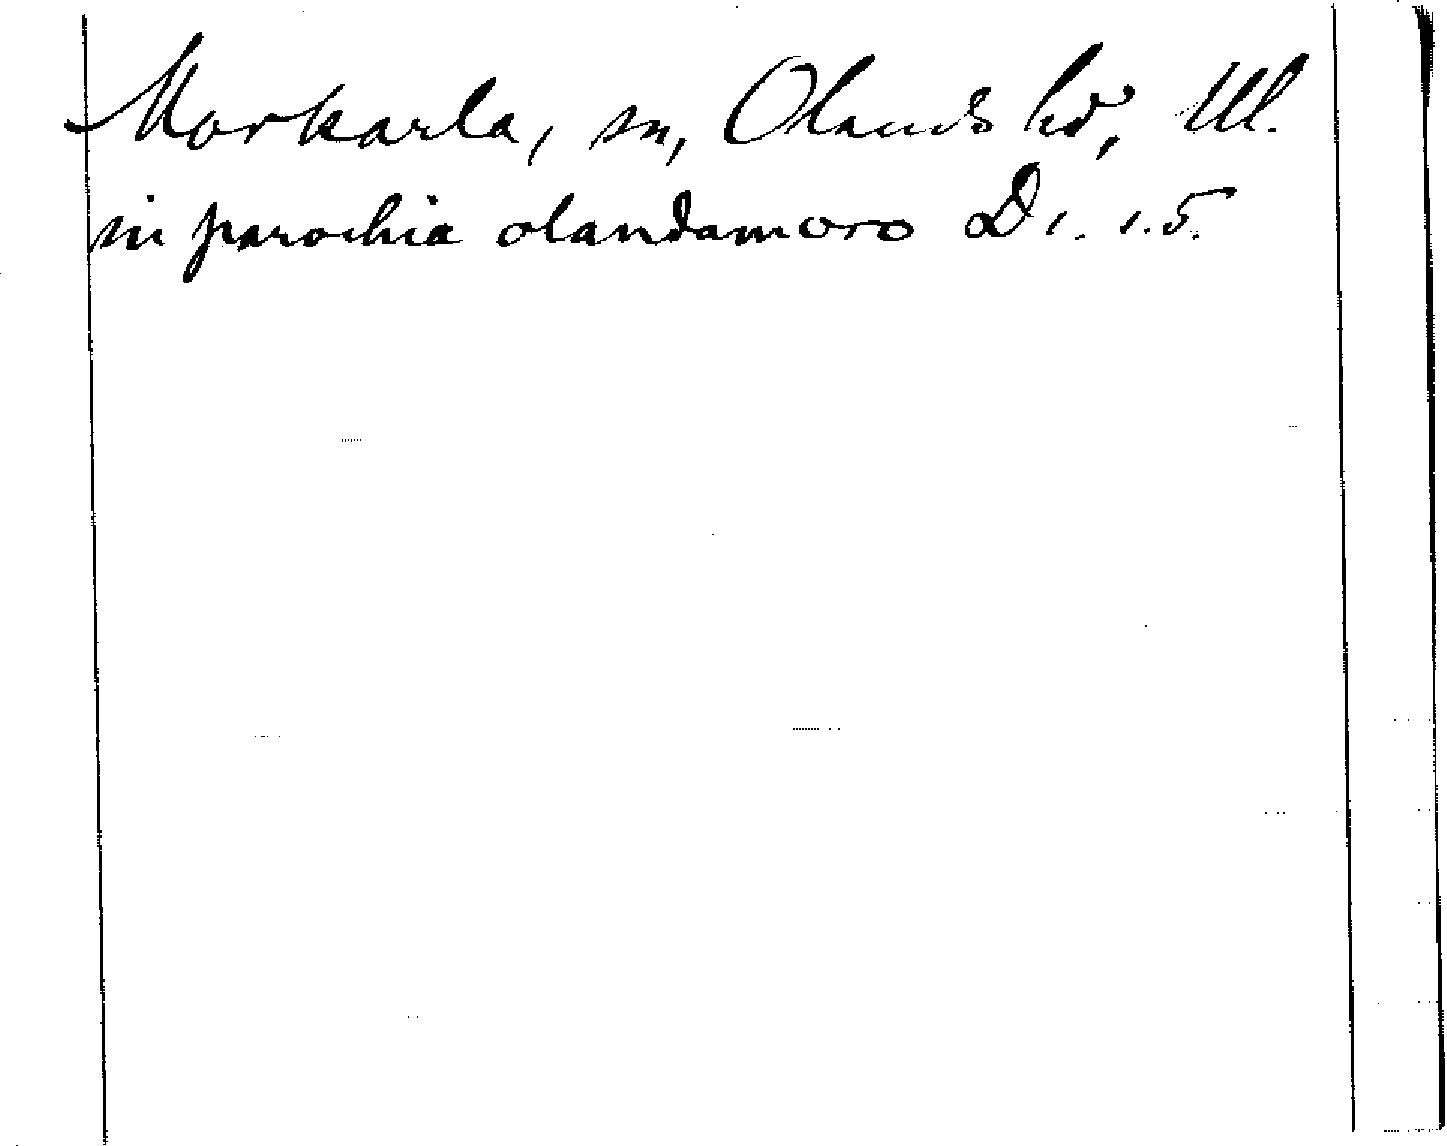 Morkarla, sn, Olands hd, Upl.
in parochia olandamoro D 1. 1.5.